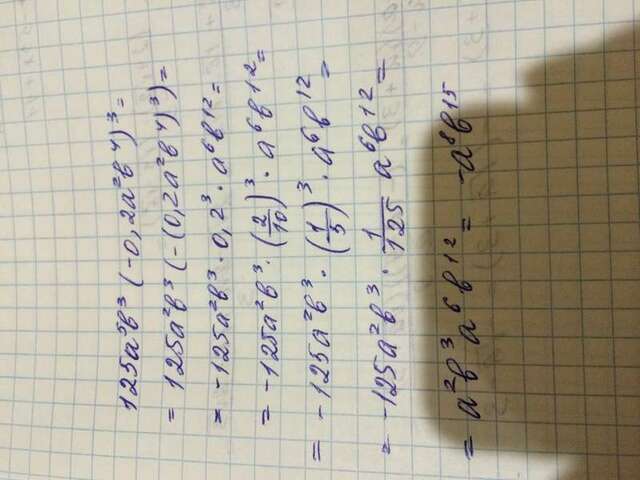 125a⁵b³ (-0,2a²b⁴)³=
= 125a²b³ (-(0,2a²b⁴)³)=
= -125a²b³ · 0,2³ · a⁶b¹²=
= -125a²b³ · (2/10)³ · a⁶b¹²=
= -125a²b³ · (1/5)³ · a⁶b¹²=
= -125a²b³ · 1/125 a⁶b¹²=
= a²b³a⁶b¹²= -a⁸b¹⁵